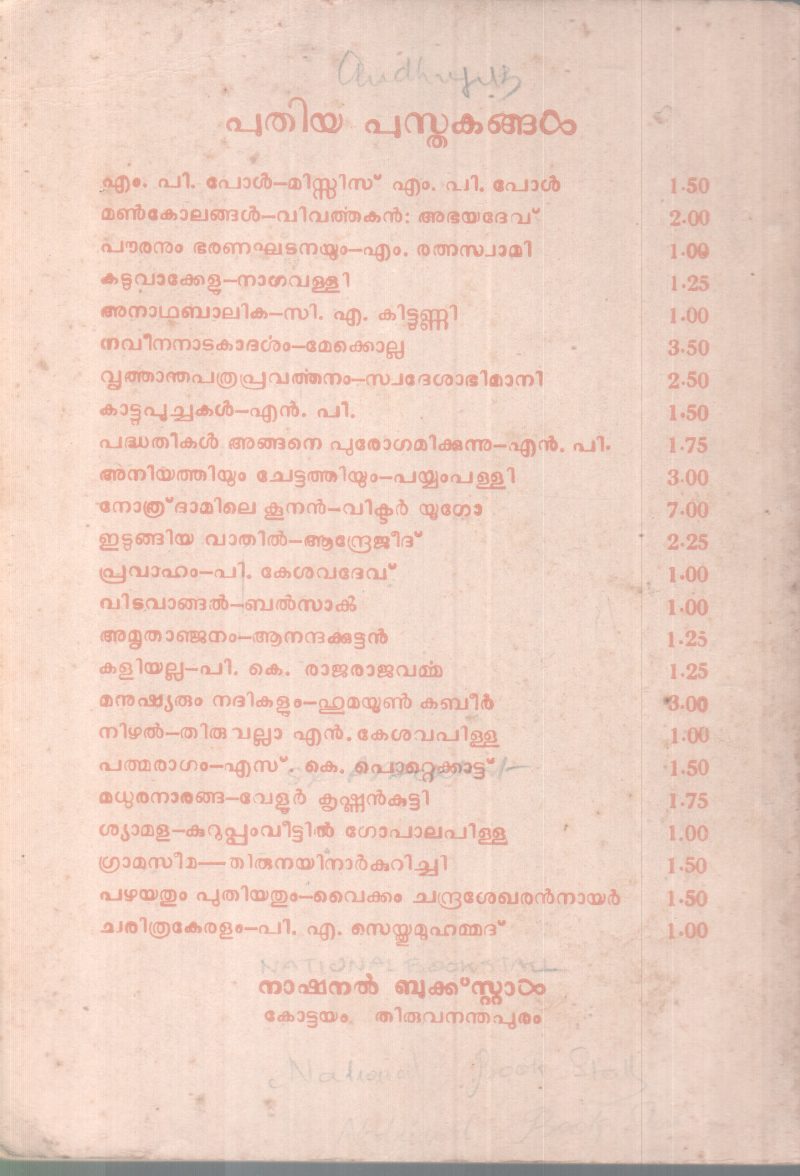 പുതിയ പുസ്തകങ്ങൾ
എം. പി. പോൾ—മിസ്സിസ് എം. പി. പോൾ 1·50
മൺകോലങ്ങൾ—വിവൎത്തകൻ: അഭയദേവ് 2·00
പൗരനും ഭരണഘടനയും—എം. രത്നസ്വാമി 1·00
കടുവാക്കേളു—നാഗവള്ളി 1·25
അനാഥബാലിക—സി. എ. കിട്ടുണ്ണി 1·00
നവീനനാടകാദൎശം—മേക്കൊല്ല 3·50
വൃത്താന്തപത്രപ്രവൎത്തനം—സ്വദേശാഭിമാനി 2·50
കാട്ടുപൂച്ചകൾ—എൻ. പി. 1·50
പദ്ധതികൾ അങ്ങനെ പുരോഗമിക്കുന്നു—എൻ. പി. 1·75
അനിയത്തിയും ചേട്ടത്തിയും—പയ്യംപള്ളി 3·00
നോത്ര്ദാമിലെ കൂനൻ—വിക്ടർ യൂഗോ 7·00
ഇടുങ്ങിയ വാതിൽ—ആന്ദ്രേജീദ് 2·25
പ്രവാഹം—പി. കേശവദേവ് 1·00
വിടവാങ്ങൽ—ബൽസാക്ക് 1·00
അമൃതാഞ്ജനം—ആനന്ദക്കുട്ടൻ 1·25
കളിയല്ല—പി. കെ. രാജരാജവൎമ്മ 1·25
മനുഷ്യരും നദികളും—ഹുമയൂൺ കബീർ 3·00
നിഴൽ—തിരുവല്ലാ എൻ. കേശവപിള്ള 1·00
പത്മരാഗം—എസ്. കെ. പൊറ്റെക്കാട്ട് 1·50
മധുരനാരങ്ങ—വേളൂർ കൃഷ്ണൻകുട്ടി 1·75
ശ്യാമള—കുറുപ്പംവീട്ടിൽ ഗോപാലപിള്ള 1.00
ഗ്രാമസീമ—തിരുനയിനാർകുറിച്ചി 1·50
പഴയതും പുതിയതും—വൈക്കം ചന്ദ്രശേഖരൻനായർ 1·50
ചരിത്രകേരളം—പി. എ. സെയ്തുമുഹമ്മദ് 1·00
NATIONAL BOOK STALL
നാഷനൽ ബുക്ക്സ്റ്റാൾ
കോട്ടയം തിരുവനന്തപുരം
National Book Stall
National Book